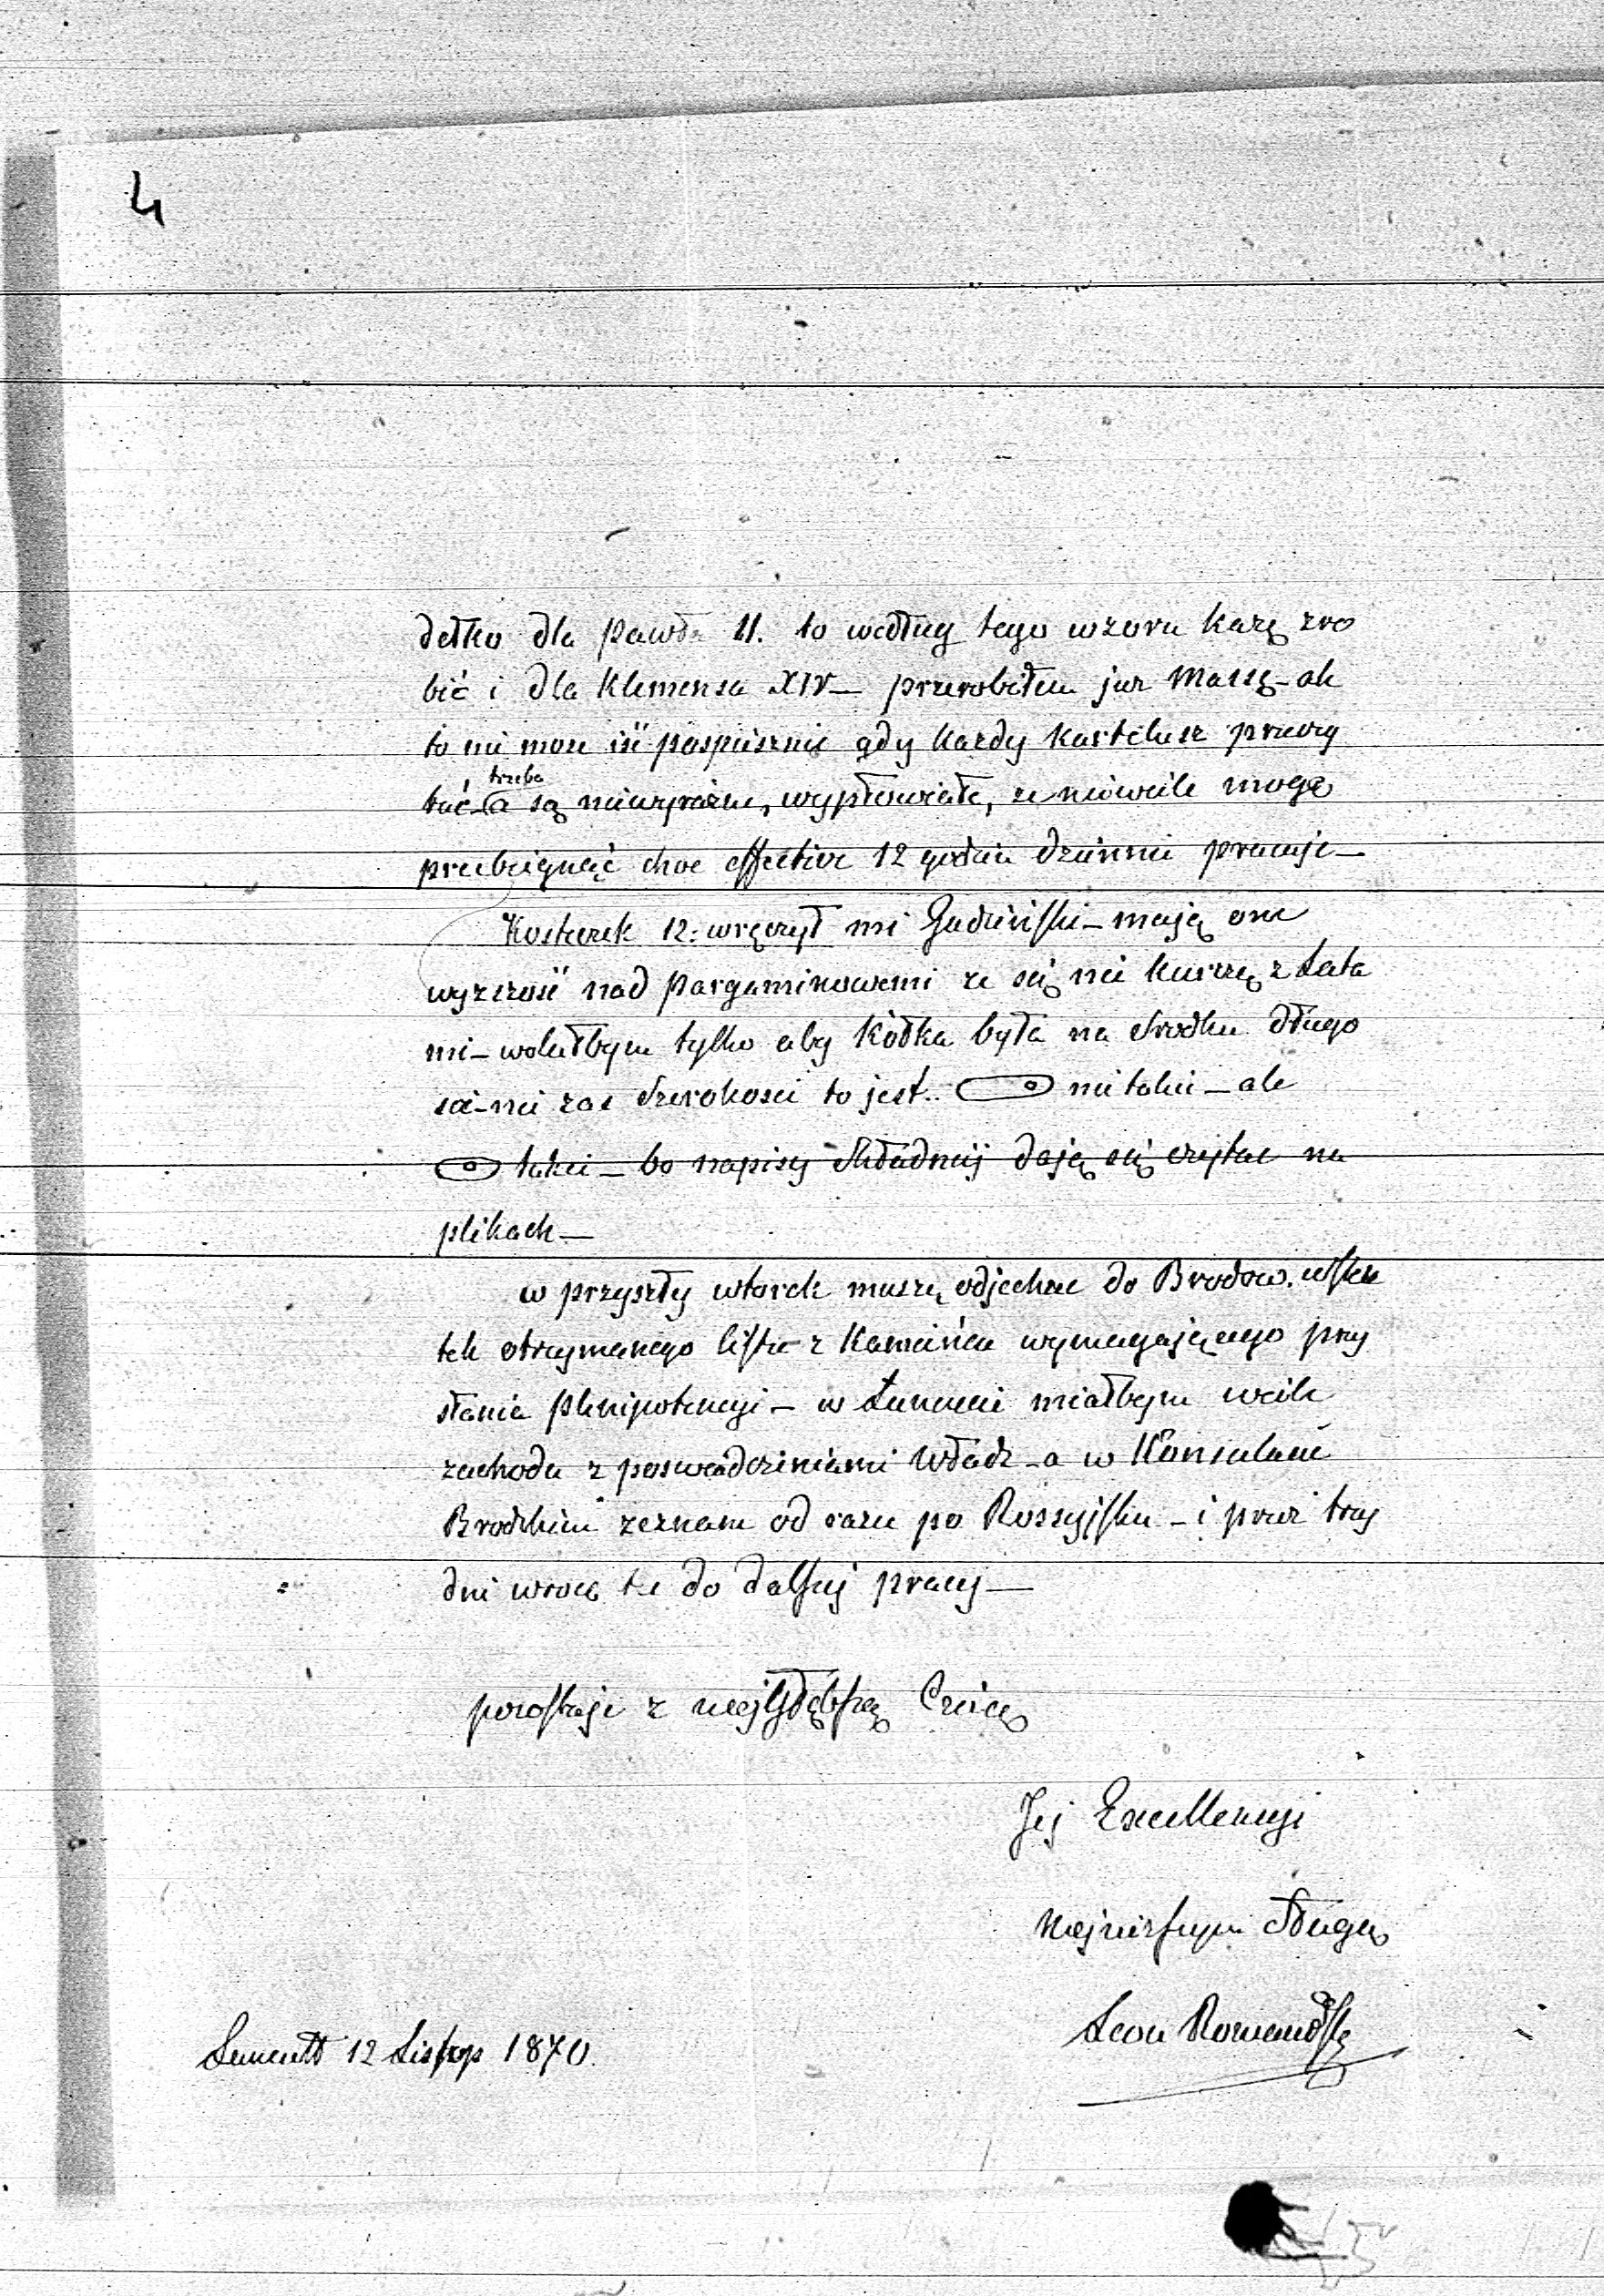 4
dełko dla Pawła II. to według tego wzoru każę zro
bić i dla Klemensa XIV— przerobiłem już massę – ale
to nie może iść pospiesznie gdy każdy kartelusz przeczy
trzeba
tać – a są niewyraźne, wypłowiałe, że niewiele mogę
przebiegnąć choc effective 12 godzin dziennie pracuje—
Kosteczek 12. wręczył mi – mają one
wyższość nad pargaminowemi że się nie kurczą z lata
mi – wolałbym tylko aby kółka była na srodku długo
sci – nie zas szerokosci to jest.. nie takie – ale
takie – bo napisy składniej dają się czytac na
plikach—
w przyszły wtorek muszę odjechac do Brodow. wsku
tek otrzymanego listu z Kamieńca wymagającego przy
słania plenipotencyi – w Łancucie miałbym wiele
zachodu z poswiadczeniami władz – a w Konsulacie
Brodzkim zeznam od razu po Rossyjsku – i przez trzy
dni wrocę tu do dalszej pracy—
pozostaje z najgłębszą Czcią
Jej Excellencyi
Najniższym sługą
Leon
12 Listop 1870.